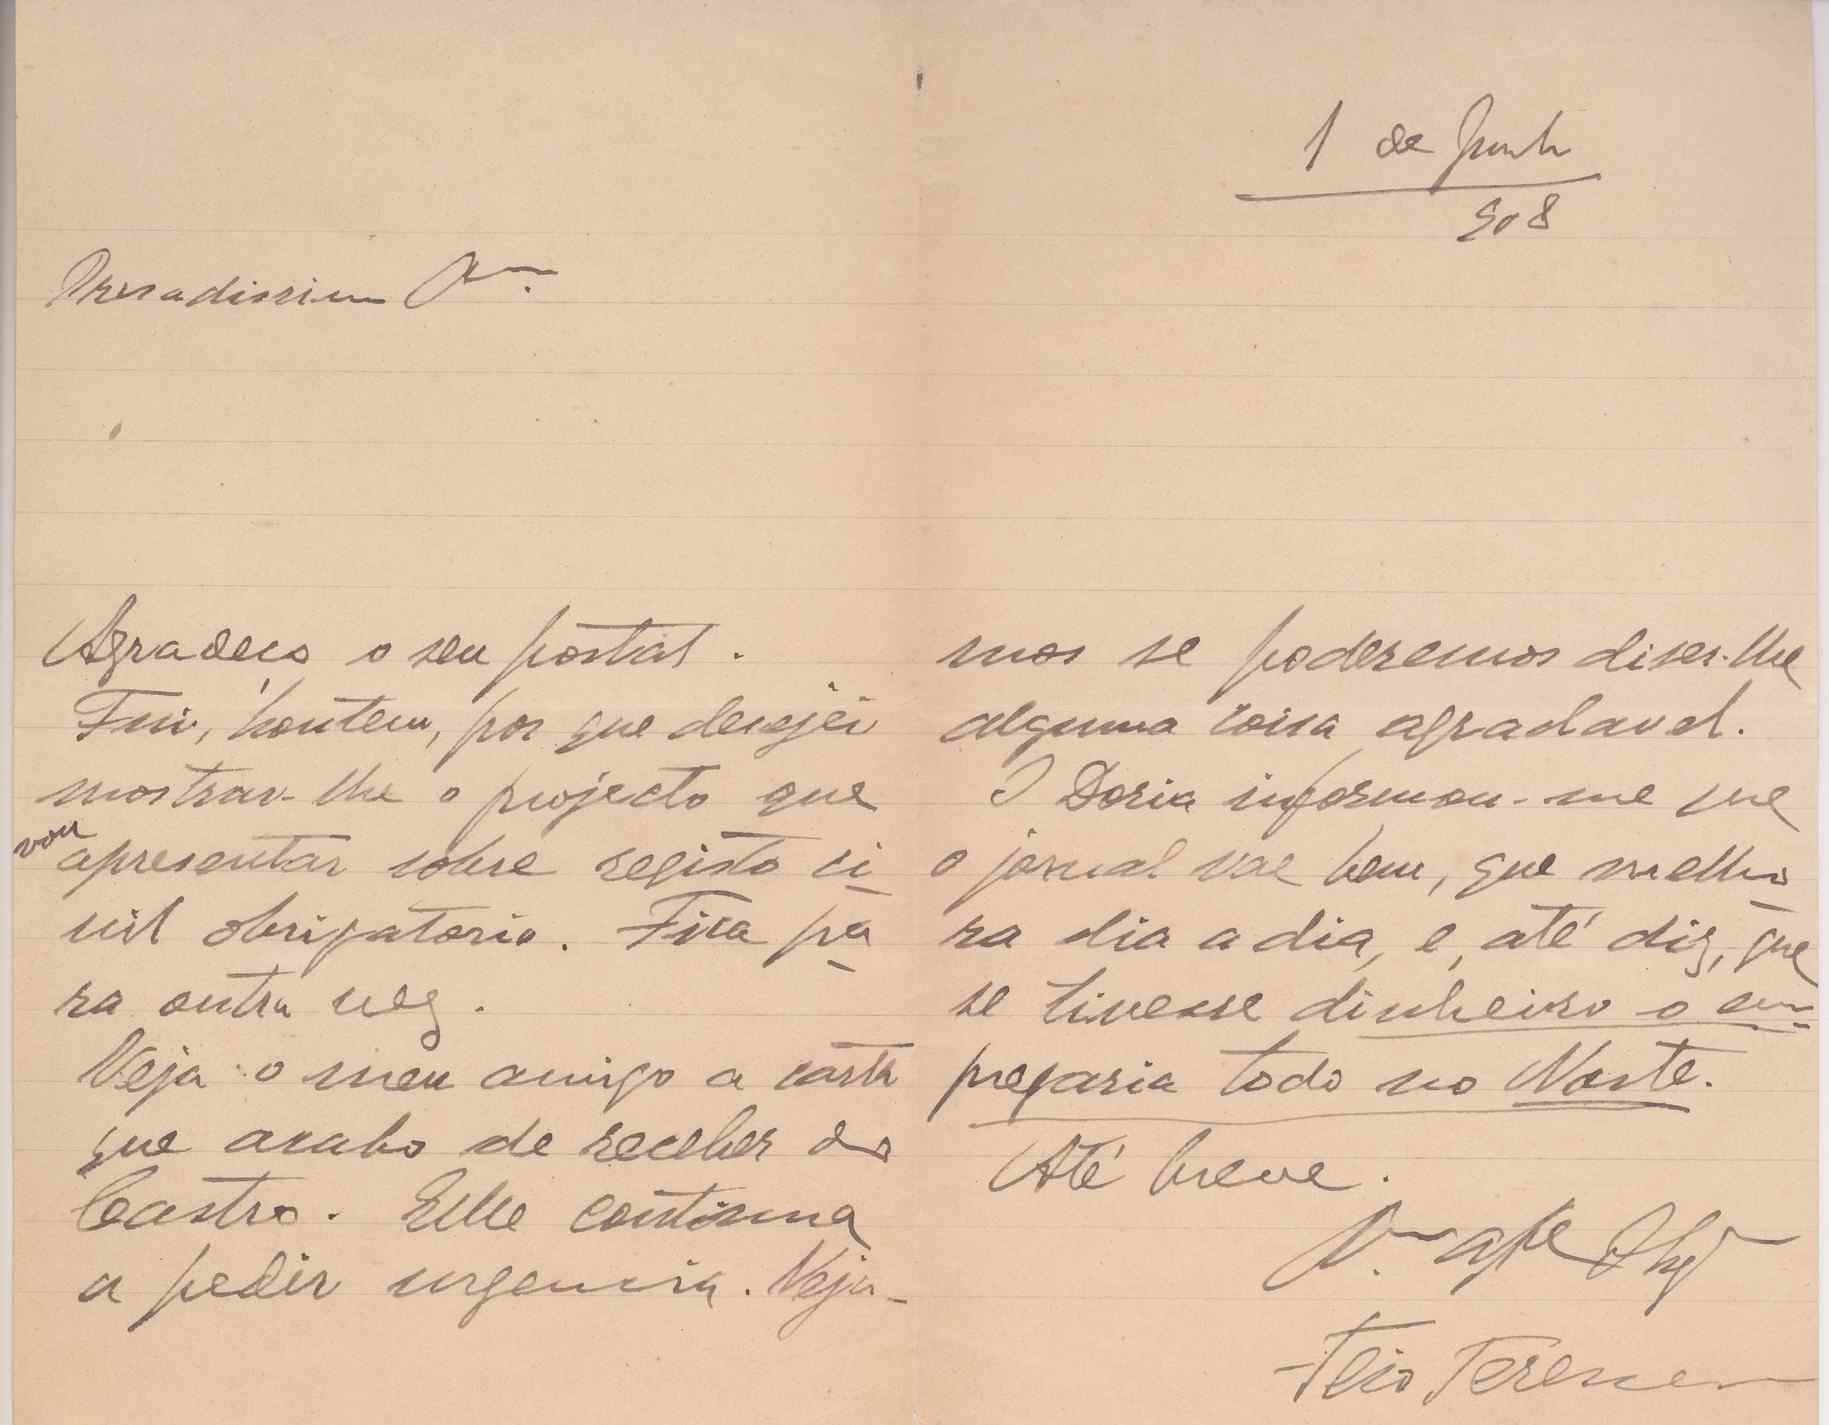 1 de Junho
908
Presadissimo Am.º
Agradeço o seu postal.
Fui, hontem, por que desejei
mostrar-lhe o projecto que
vou apresentar sobre registo ci-
vil obrigatorio. Fica pa-
ra outra vez.
Veja o meu amigo a carta
que acabo de receber do
Castro. Elle continua
a pedir urgencia. Veja-
mos se poderemos diser-lhe
alguma coisa agradavel.
O Doria informou-me que
o jornal vae bem, que melho-
ra dia a dia, e, até diz, que
se tivesse dinheiro o em-
pregaria todo no Norte.
Até breve.
Am.º
Feio Terenas